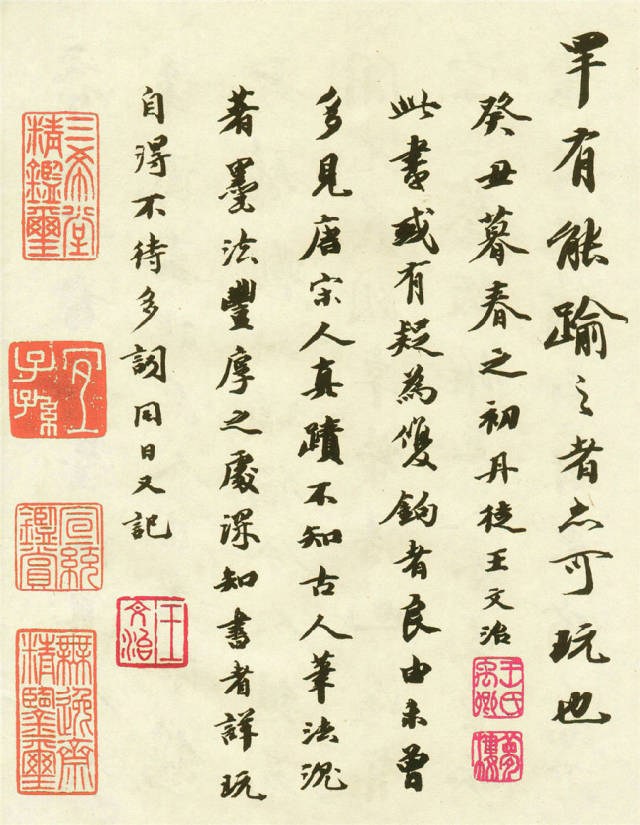 罕有能踰之者亦可玩也
癸丑暮春之初丹徒王文治
王氏禹卿
夢樓
此書或有疑為雙鈎者良由未曾
多見唐宋人真蹟不知古人筆法沉
著墨法豐厚之處深知書者詳玩
自得不待多詞同日又記
王文治
三希堂精鑑璽
宜子孫
宣統鑑賞
無逸齋精鑒璽